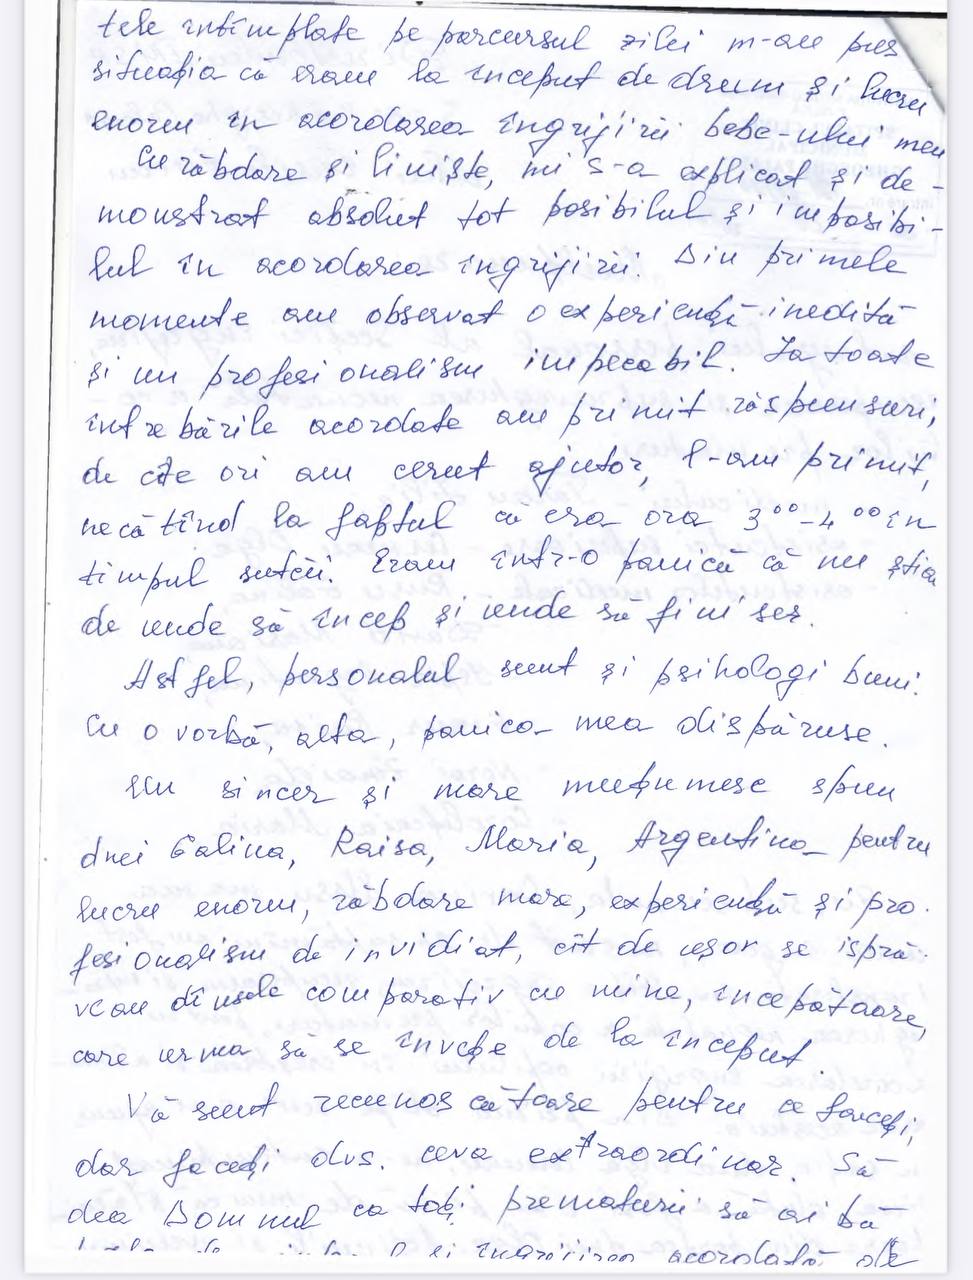 tele întîmplate pe parcursul zilei m-au pus
situația că eram la început de drum și lucru
enorm în acordarea îngrijirii bebe-ului meu
Cu răbdare și liniște, mi s-a explicat și de-
monstrat absolut tot posibilul și imposibi-
lul în acordarea îngrijirii. Din primele
momente am observat o experiență inedită
și un profesionalism impecabil. La toate
întrebările acordate am primit răspunsuri,
de cîte ori am cerut ajutor, l-am primit,
necătînd la faptul că era ora 3⁰⁰-4⁰⁰ în
timpul nopții. Eram într-o panică că nu știa
de unde să încep și unde să finisez.
Astfel, personalul sunt și psihologi buni.
Cu o vorbă, alta, panica mea dispăruse.
Un sincer și mare mulțumesc spun
dnei Galina, Raisa, Maria, Argentina pentru
lucru enorm, răbdare mare, experiență și pro-
fesionalism de invidiat, cît de ușor se ispră-
veau dinsele comparativ cu mine, începătoare,
care urma să se învețe de la început.
Vă sunt recunoscătoare pentru ce faceți,
dar faceți dvs. ceva extraordinar. Să
dea Domnul ca toți prematurii să ai bă
îngrijirea acordată de